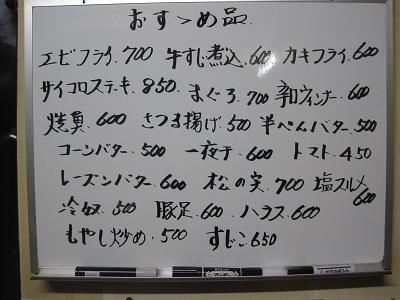 おすゝめ品.
エビフライ.700 牛すじ煮込.600 カキフライ.600
サイコロステーキ.850 まぐろ.700 辛口ウィンナー.600
焼貝 600 さつま揚げ.500 半ぺんバター.500
コーンバター.500 一夜干.600 トマト.450
レーズンバター.600 松の実.700 塩スルメ 600
冷奴.500 豚足.600 ハラス.600
もやし炒め.500 すじこ.650